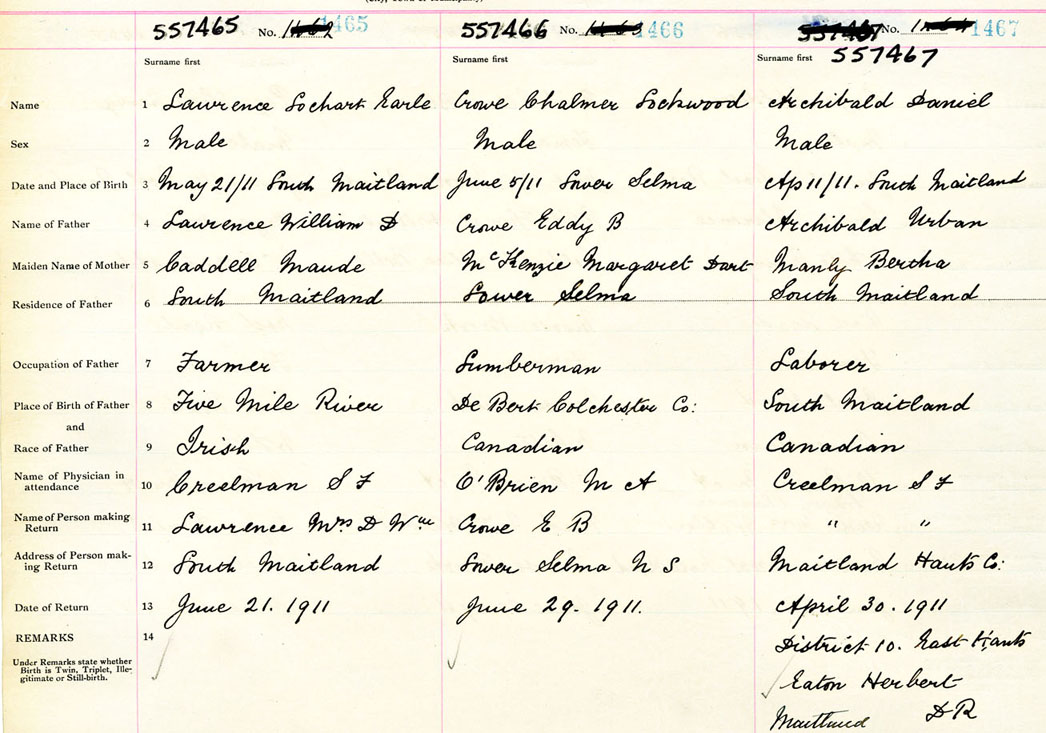 (City, Town or Municipality)
557465 No. 1465 557466 No. 1466 No. 1467
557467
Surname first Surname first Surname first
Name 1 Lawrence Lochart Earle Crowe Chalmer Lockwood Archibald Daniel
Sex 2 Male Male Male
Date and Place of Birth 3 May 21/11 South Maitland June 5/11 Lower Selma Ap 11/11. South Maitland
Name of Father 4 Lawrence William D Crowe Eddy B Archibald Urban
Maiden Name of Mother 5 Caddell Maude McKenzie Margaret Dart Manly Bertha
Residence of Father 6 South Maitland Lower Selma South Maitland
Occupation of Father 7 Farmer Lumberman Laborer
Place of Birth of Father 8 Five Mile River De Bert Colchester Co: South Maitland
and
Race of Father 9 Irish Canadian Canadian
Name of Physician in
attendance 10 Creelman S F O'Brien M A Creelman S F
Name of Person making
Return 11 Lawrence Mrs D Wm Crowe E B " "
Address of Person mak-
ing Return 12 South Maitland Lower Selma N S Maitland Hants Co:
Date of Return 13 June 21. 1911 June 29. 1911. April 30. 1911
REMARKS 14 District 10. East Hants
Under Remarks state whether
Birth is Twin, Triplet, Ille-
gitimate or Still-birth.
Eaton Herbert
Maitland D R